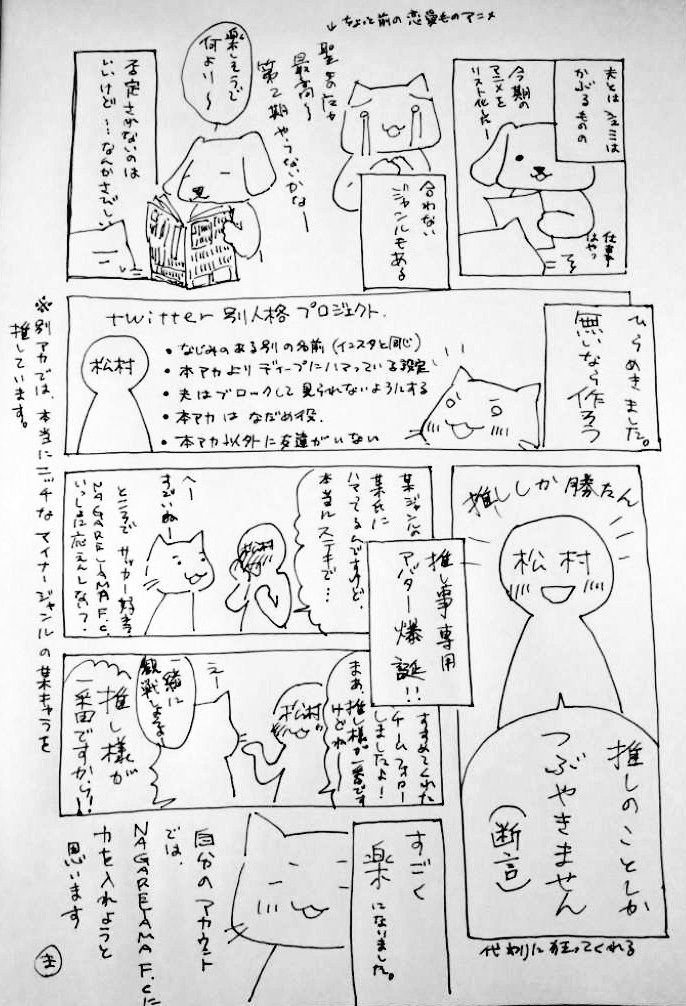 夫とは シュミは
かぶるものの
今期の
アニメを
リスト化だー
仕事
はやっ
合わない
ジャンルもある
↓ちょっと前の恋愛ものアニメ
最高〜
第2期やらないかなー
楽しそうで
何より〜
否定されないのは
いいけど…なんかさびしい
ひらめきました。
無いなら作ろう
twitter別人格プロジェクト.
松村
•なじみのある別の名前(インスタと同じ)
•本アカよりディープにハマっている設定
•夫はブロックして見られないようにする
•本アカはなだめ役.
•本アカ以外に友達がいない
※別アカでは、本当にニッチなマイナージャンルの某キャラを
推しています。
推ししか勝たん
松村
推し事専用
アバター爆誕!!
推しのことしか
つぶやきません
(断言)
代わりに狂ってくれる
某ジャンルの
某氏に
ハマってるんですけど、
本当にステキで…
松村
へー
すごいねー
ところでサッカー好き?
NAGAREYAMA F.C.
いっしょに応えんしない?
すすめてくれた
チームフォロー
しましたよ!
まあ、推し様が一番です
けどねー
松村
えー
一緒に
観戦しようよー
推し様が
一番ですから!
すごく
楽になりました。
自分のアカウント
では、
NAGAREYAMA F.Cに
力を入れようと
思います